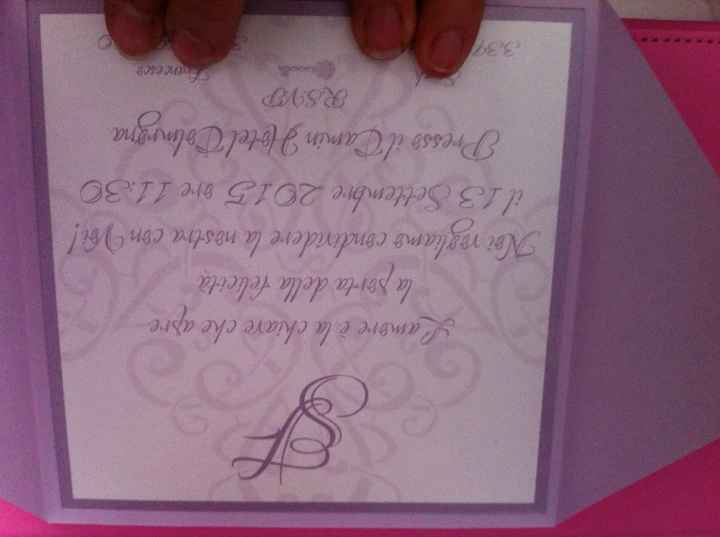 L'amore è la chiave che apre
la porta della felicità
Noi vogliamo condividere la nostra con Voi!
il 13 Settembre 2015 ore 11:30
Presso il Camin Hotel Colmegna
RSVP
Francesco